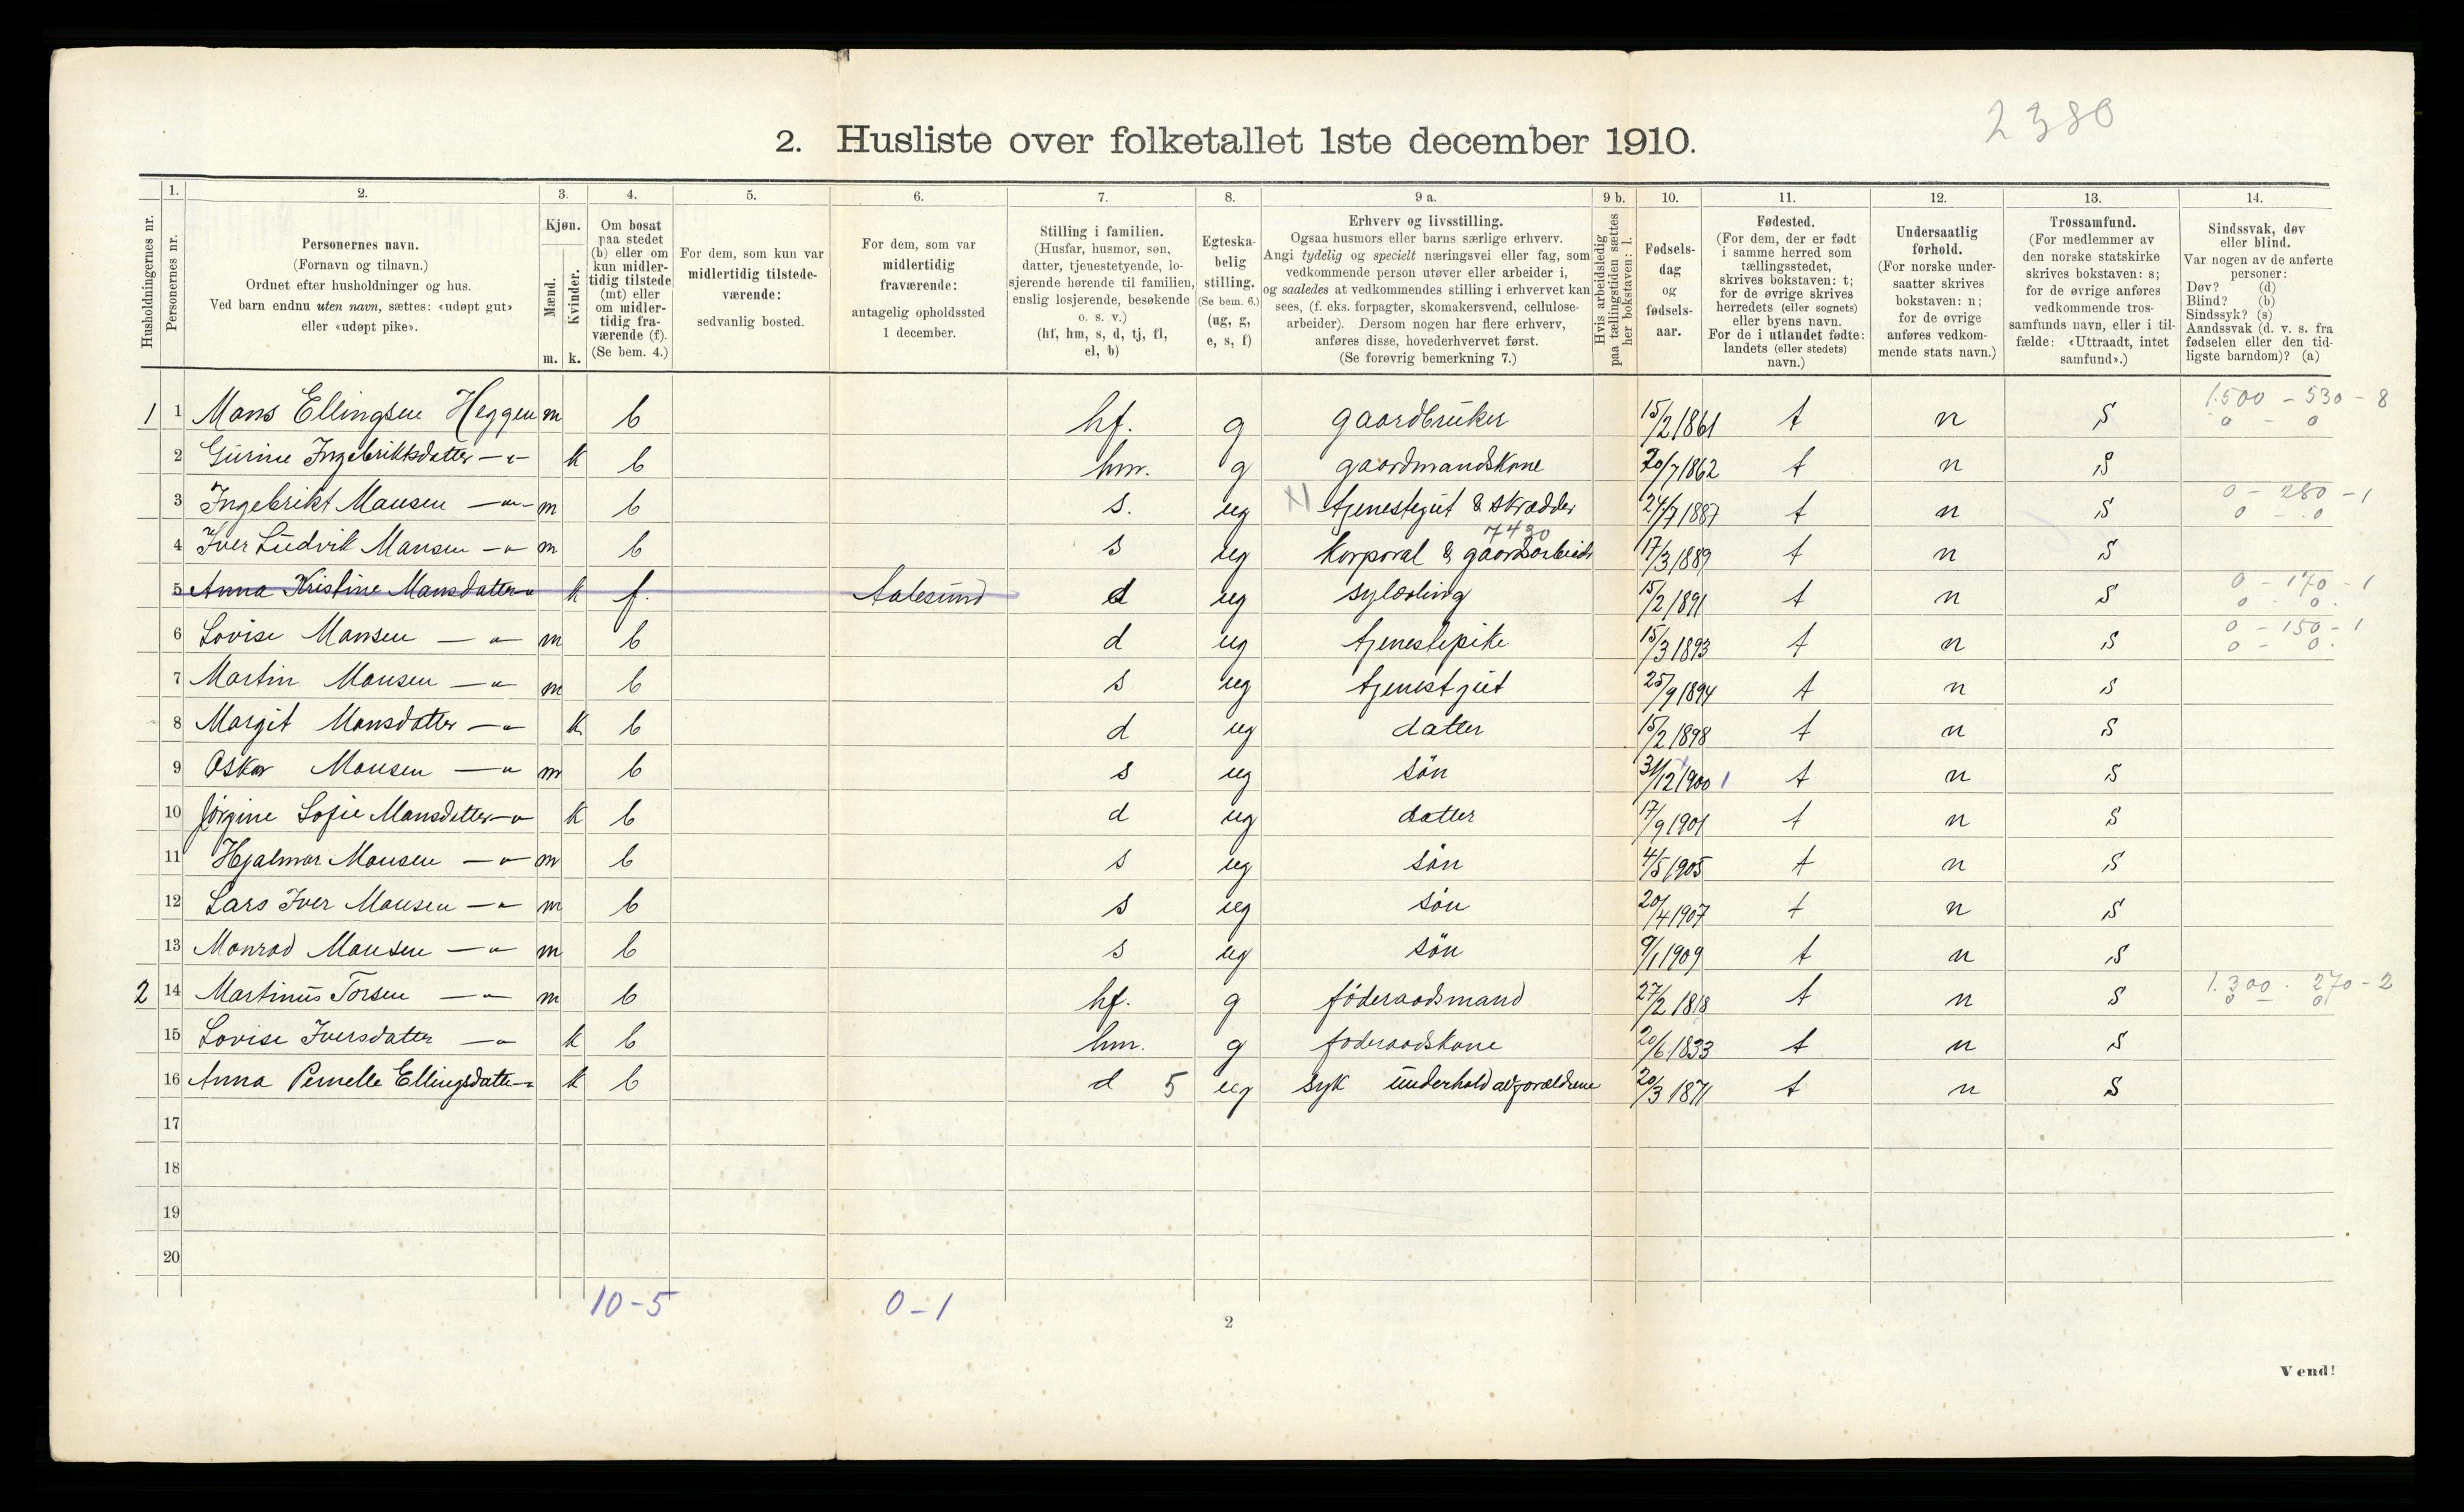 2380
2. Husliste over folketallet 1ste december 1910.
Husholdningernes nr.
1. Personernes nr.
2. Personernes navn. (Fornavn og tilnavn.) Ordnet efter husholdninger og hus. Ved barn endnu uten navn, sættes: «udøpt gut» eller «udøpt pike».
3. Kjøn. Mænd. m. Kvinder. k.
4. Om bosat paa stedet (b) eller om kun midlertidig tilstede (mt) eller om midlertidig fraværende (f). (Se bem. 4.)
5. For dem, som kun var midlertidig tilstedeværende: sedvanlig bosted.
6. For dem, som var midlertidig fraværende: antagelig opholdssted 1 december.
7. Stilling i familien. (Husfar, husmor, søn, datter, tjenestetyende, losjerende hørende til familien, enslig losjerende, besøkende o. s. v.) (hf, hm, s, d, tj, fl, el, b)
8. Egteskabelig stilling. (Se bem. 6.) (ug, g, e, s, f)
9 a. Erhverv og livsstilling. Ogsaa husmors eller barns særlige erhverv. Angi tydelig og specielt næringsvei eller fag, som vedkommende person utøver eller arbeider i, og saaledes at vedkommendes stilling i erhvervet kan sees, (f. eks. forpagter, skomakersvend, cellulosearbeider). Dersom nogen har flere erhverv, anføres disse, hovederhvervet først. (Se forøvrig bemerkning 7.)
9 b. Hvis arbeidsledig paa tællingstiden sættes her bokstaven: l.
10. Fødselsdag og fødselsaar.
11. Fødested. (For dem, der er født i samme herred som tællingsstedet, skrives bokstaven: t; for de øvrige skrives herredets (eller sognets) eller byens navn. For de i utlandet fødte: landets (eller stedets) navn.)
12. Undersaatlig forhold. (For norske undersaatter skrives bokstaven: n; for de øvrige anføres vedkommende stats navn.)
13. Trossamfund. (For medlemmer av den norske statskirke skrives bokstaven: s; for de øvrige anføres vedkommende trossamfunds navn, eller i tilfælde: «Uttraadt, intet samfund».)
14. Sindssvak, døv eller blind. Var nogen av de anførte personer: Døv? (d) Blind? (b) Sindssyk? (s) Aandssvak (d. v. s. fra fødselen eller den tidligste barndom)? (a)
1 1 Mons Ellingsen Heggen m b hf. g gaardbruker 15/2 1861 t n S 1.500 - 530 - 8 0 - 0
2 Gurine Ingebriktsdatter -"- k b hm. g gaardmandskone 20/7 1862 t n S
3 Ingebrikt Monsen -"- m b s. ug tjenestegut & skrædder 24/7 1887 t n S 0 - 280 - 1 0 - 0
4 Iver Ludvik Monsen -"- m b s ug Korporal & gaardsarbeid 7430 17/3 1889 t n S
5 Anna Kristine Monsdatter -"- k f. Aalesund d ug sylærling 15/2 1891 t n S 0 - 170 - 1 0 - 0.
6 Lovise Monsen -"- m b d ug tjenestepike 15/3 1893 t n S 0 - 150 - 1 0 - 0.
7 Martin Monsen -"- m b s ug tjenestgut 25/9 1894 t n S
8 Margit Monsdatter -"- k b d ug datter 15/2 1898 t n S
9 Oskar Monsen -"- m b s ug sön 31/12 1900 1 t n S
10 Jörgine Sofie Monsdatter -"- k b d ug datter 17/9 1901 t n S
11 Hjalmar Monsen -"- m b s ug sön 4/5 1905 t n S
12 Lars Iver Monsen -"- m b s ug sön 20/4 1907 t n S
13 Monrad Monsen -"- m b s ug sön 9/1 1909 t n S
2 14 Martinus Torsen -"- m b hf. g föderaadsmand 27/2 1818 t n S 1.300 - 270 - 2 0 - 0
15 Lovise Iversdatter -"- k b hm. g foderaadskone 20/6 1833 t n S
16 Anna Pernelle Ellingsdatter -"- k b d 5 ug syk underhold av forældrene 20/3 1871 t n S
17
18
19
20
10-5 0-1
2
Vend!